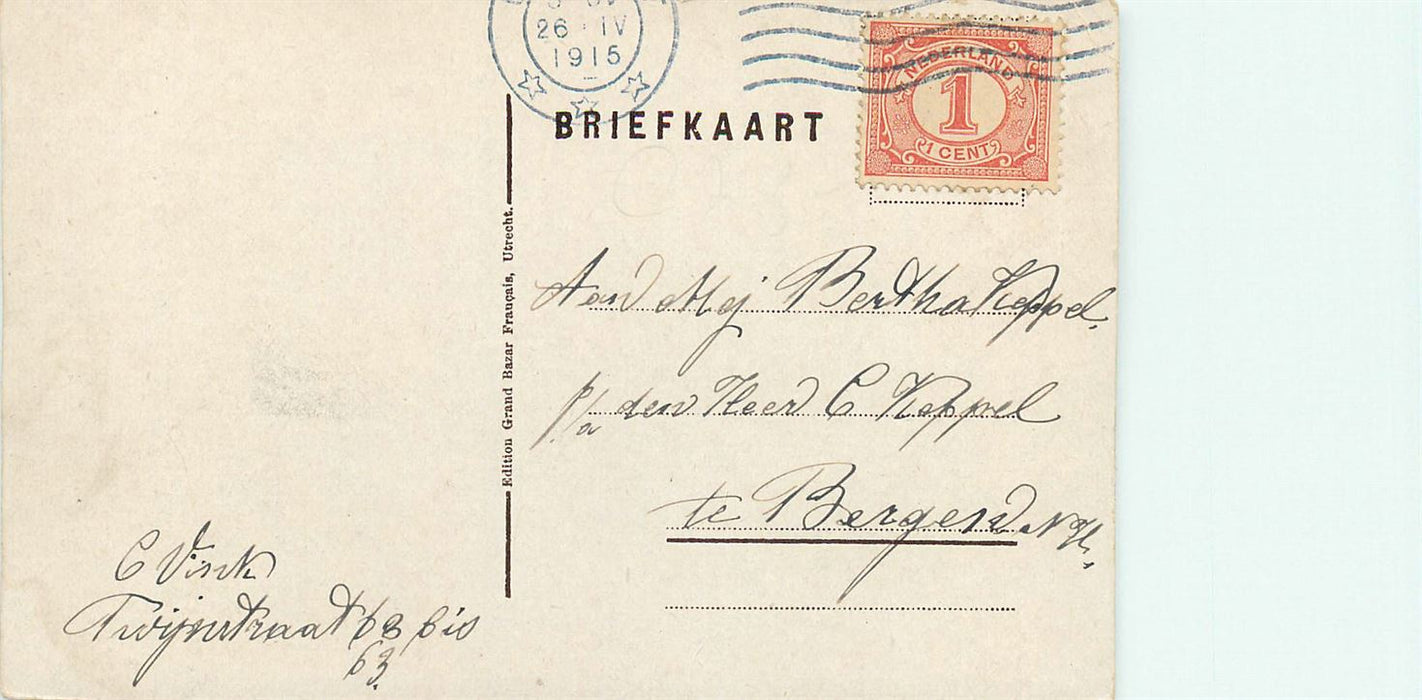 26 IV
1915
NEDERLAND
1
1 CENT
BRIEFKAART
Edition Grand Bazar Français, Utrecht.
Aan Mej Bertha Keppel,
p/a den Heer C Keppel
te Bergen N.H.
C Vink
Twijnstraat 63 bis
63.